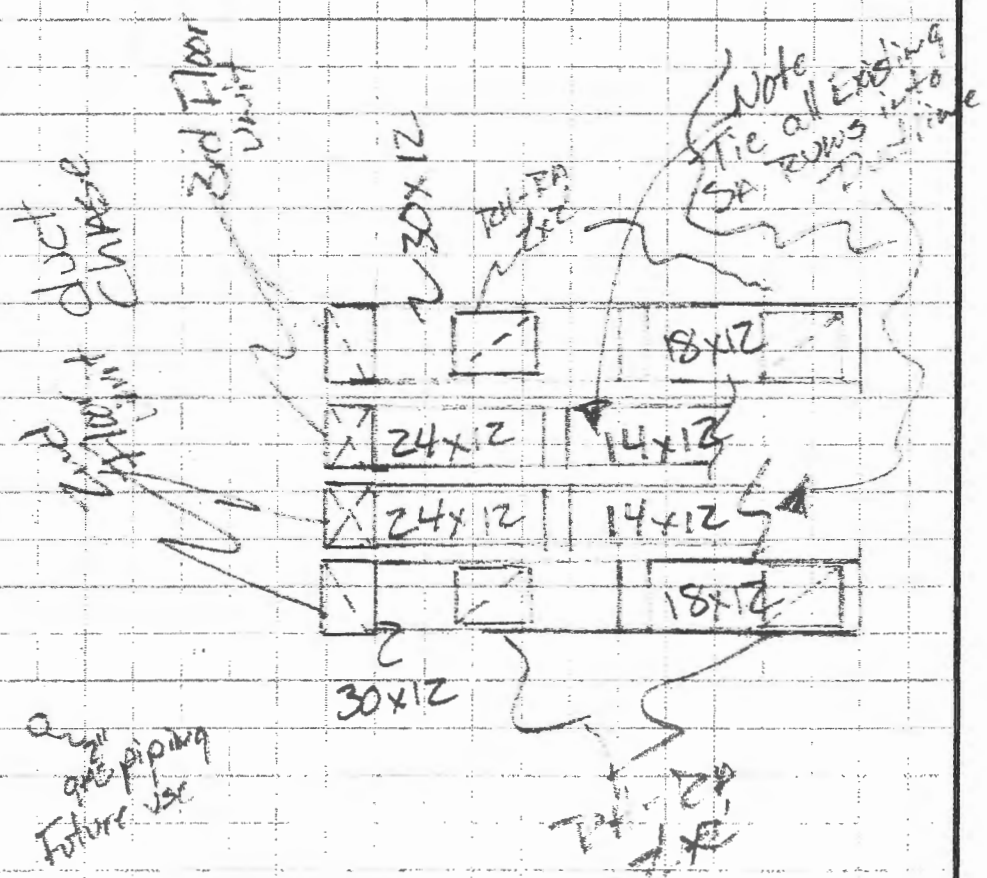 3rd Floor
unit
duct
chase
30x12
2x2
Note
Tie all Existing
SA Runs into
18x12
24x12
14x12
24x12
14x12
18x12
30x12
2"
gas piping
Future use